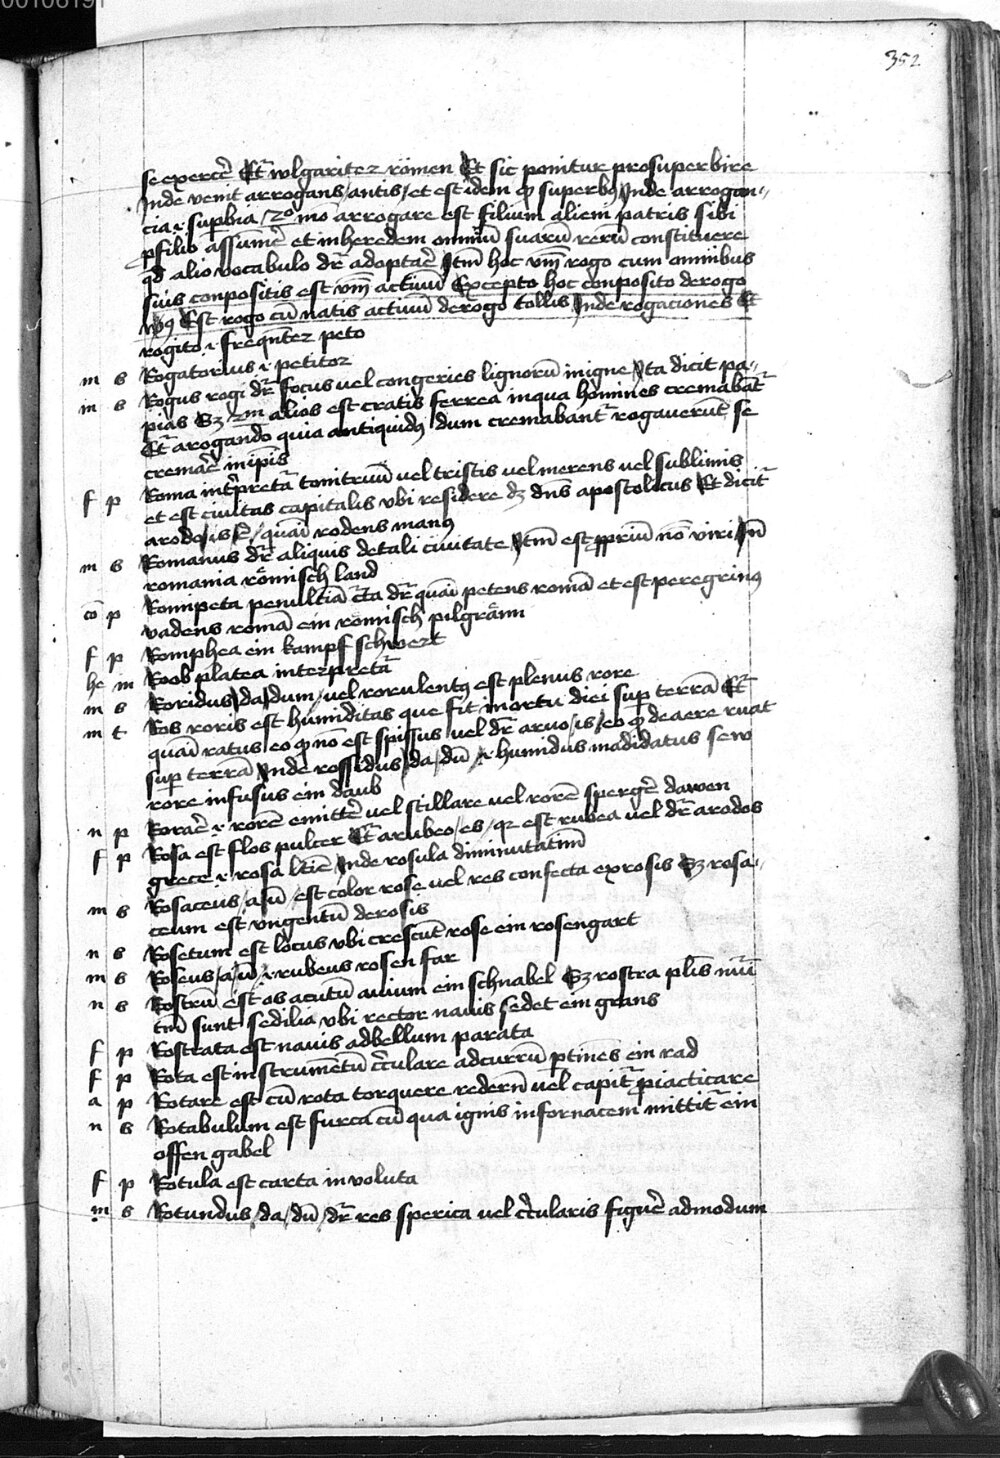 00106191
352
se exerce᷑ Et᷑ wlgariter römen Et sic ponitur pro superbire
Inde venit arrogans / antis / et est idem qͥ superbꝰ Inde arrogan-
cia .i. supbia / 2º mō arrogare est filium alienī patris sibi
p filio assume᷑ et in heredem omniū suarū rerū constituere
qd alio vocabulo dr̄ adoptac᷑ Itm̄ hoc vm̄ rogo cum omnibus
suis conpositis est vm̄ actiuū Excepto hoc conposito derogo
Est rogo cū natis actiuū derogo tollis Inde rogaciones Et
rogito .i. freqn̄ter peto
m s Rogatorius .i. petitor
m s Rogus rogi dr̄ focus vel congeries lignorū in igne Ita dicit pa-
pias Sꝫ 2m alios est cratis ferrea in qua homines cremabāt᷑
Et᷑ a rogando quia antiquidꝰ dum cremabant᷑ rogauerūt se
crema᷑e in ip̄is
f p Roma int᷑pretat᷑ tonitruū vel tristis vel merens vel sublimis
et est ciuitas capitalis vbi residere dꝫ dn̄s apostolicus Et dicit᷑
a rodo / is / quasi rodens manꝰ
m s Romanus dr̄ aliquis de tali ciuitate Itm̄ est ꝓpriū nō viri In̄
romania römisch land
cō p Romipeta penultīa c᷑ta dr̄ quasi petens romā et est peregrinꝰ
vadens romā ein römisch pilgräm
f p Romphea ein kampf schwert
he m Roob platea interpretat᷑
m s Roridus / da / dum / vel rorulentꝰ est plenus rore
m t Ros roris est humiditas que fit in ortu diei sup terrā Et᷑
quasi ratus / eo qͥ nō est spissus vel dr̄ a ruo / is / eo qͥ de aere ruat
sup terrā Inde rossidus / da / dū / .i. humidus madidatus seu
rore infusus ein daub
n p Rora᷑e .i. rorē emitte᷑ vel stillare vel rorē sperge᷑ dawen
f p Rosa est flos pulcer Et᷑ a rubeo / es / qꝛ est rubea vel dr̄ a rodos
grece .i. rosa latīe Inde rosula diminutatim̄
m s Rosaceus / a / ū / est color rose vel res confecta ex rosis Sꝫ rosa-
ceum est vngentū de rosis
n s Rosetum est locus vbi crescūt rose ein rosengart
m s Roseus / a / ū / .i. rubeus rosen far
n s Rostrū est os acutū auium ein schnabel Sꝫ rostra pl̄is nūi
tm̄ sunt sedilia vbi rector nauis sedet ein grans
f p Rostrata est nauis ad bellum parata
f p Rota est instrumentū c᷑culare ad currū ptinēs ein rad
a p Rotare est cū rota torquere redern vel capit᷑ piacticare
n s Rotabulum est furca cū qua ignis in fornacem mittit᷑ ein
offen gabel
f p Rotula est carta in voluta
m s Rotundus / da / dū / dr̄ res sperica vel c᷑cularis figure᷑ ad modum